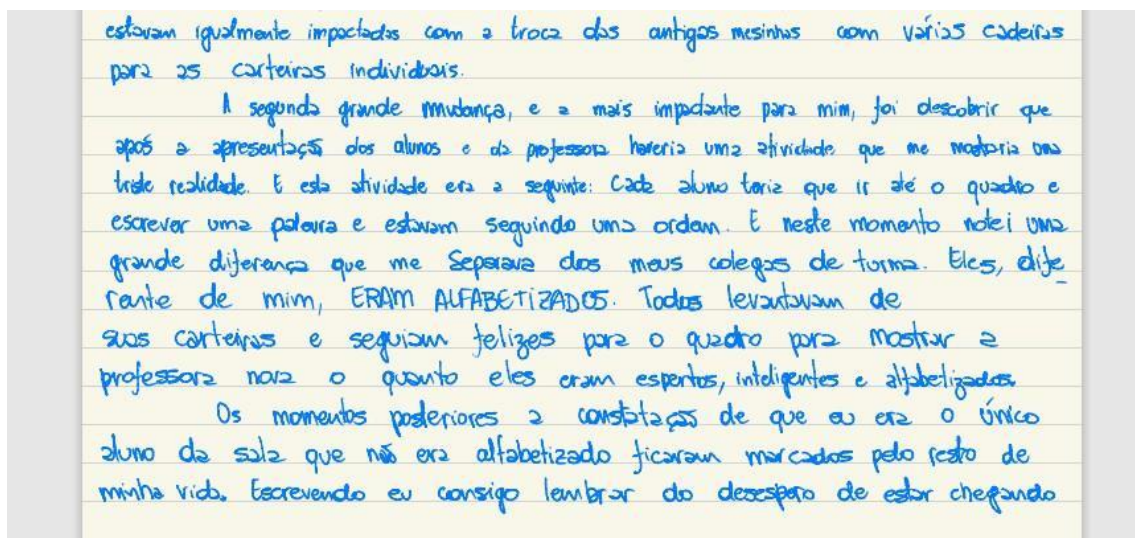 estavam igualmente impactados com a troca das antigas mesinhas com várias cadeiras
para as carteiras individuais.
A segunda grande mudança, e a mais impactante para mim, foi descobrir que
após a apresentação dos alunos e da professora haveria uma atividade que me mostraria uma
triste realidade. E esta atividade era a seguinte: Cada aluno teria que ir até o quadro e
escrever uma palavra e estavam seguindo uma ordem. E neste momento notei uma
grande diferença que me Separava dos meus colegas de turma. Eles, dife
rente de mim, ERAM ALFABETIZADOS. Todos levantavam de
suas carteiras e seguiam felizes para o quadro para mostrar a
professora nova o quanto eles eram espertos, inteligentes e alfabetizados.
Os momentos posteriores a constatação de que eu era o único
aluno da sala que não era alfabetizado ficaram marcados pelo resto de
minha vida. Escrevendo eu consigo lembrar do desespero de estar chegando